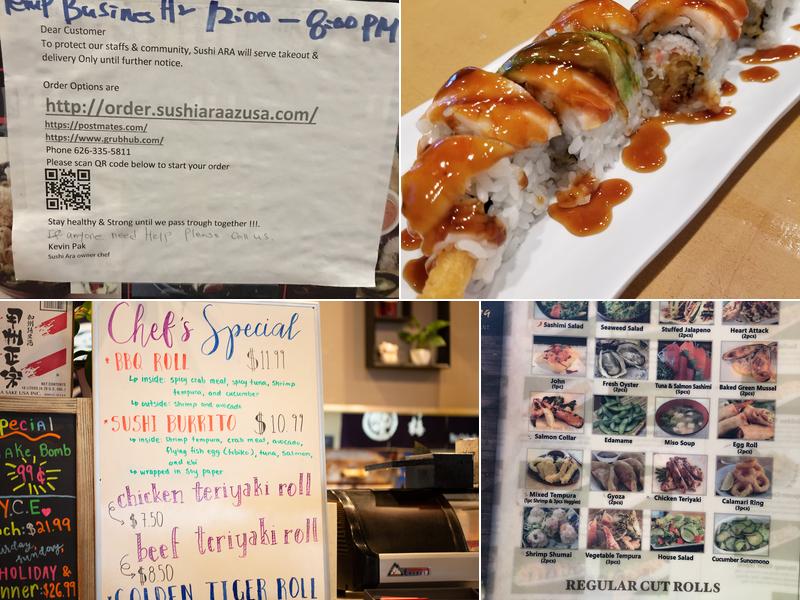 Temp Business Hr 12:00 - 8:00 PM
Dear Customer
To protect our staffs & community, Sushi ARA will serve takeout &
delivery Only until further notice.
Order Options are
http://order.sushiaraazusa.com/
https://postmates.com/
https://www.grubhub.com/
Phone 626-335-5811
Please scan QR code below to start your order
Stay healthy & Strong until we pass trough together !!!.
If anyone need Help Please Call us.
Kevin Pak
Sushi Ara owner chef
Chef's Special
* BBQ ROLL $11.99
↳ inside: spicy crab meat, spicy tuna, shrimp
tempura, and cucumber
↳ outside: shrimp and avocado
* SUSHI BURRITO $10.99
↳ inside: shrimp tempura, crab meat, avocado,
flying fish egg (tobiko), tuna, salmon,
and ebi
↳ wrapped in soy paper
chicken teriyaki roll
$7.50
beef teriyaki roll
$8.50
GOLDEN TIGER ROLL
甲州正宗
SAKE USA INC.
Special
Sake Bomb
99¢
Y.C.E
$21.99
HOLIDAY &
$26.99
Sashimi Salad
Seaweed Salad
Stuffed Jalapeno
(2pcs)
Heart Attack
(2pcs)
John
(1pc)
Fresh Oyster
(2pcs)
Tuna & Salmon Sashimi
(5pcs)
Baked Green Mussel
(2pcs)
Salmon Collar
Edamame
Miso Soup
Egg Roll
(2pcs)
Mixed Tempura
(1pc Shrimp & 3pcs Veggies)
Gyoza
(2pcs)
Chicken Teriyaki
Calamari Ring
(3pcs)
Shrimp Shumai
(2pcs)
Vegetable Tempura
(3pcs)
House Salad
Cucumber Sunomono
REGULAR CUT ROLLS